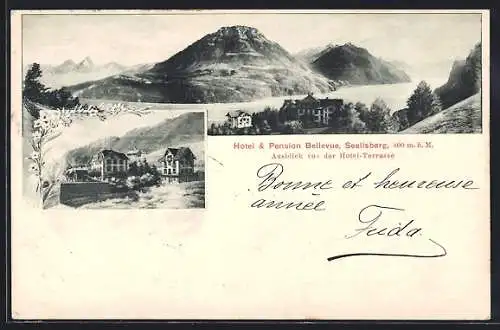 Hotel & Pension Bellevue, Seelisberg, 800 m. ü. M.
Aussicht von der Hotel-Terrasse
Bonne et heureuse
année
Frida.